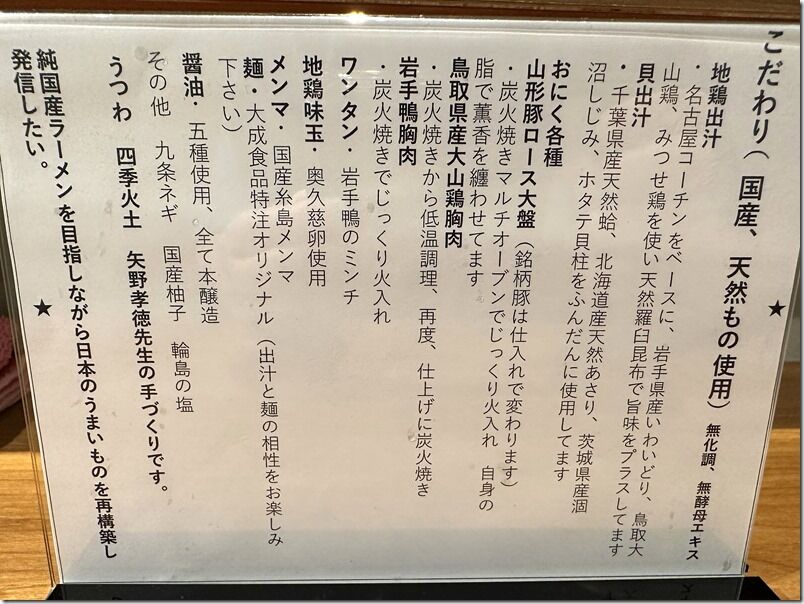 こだわり（国産、天然もの使用）無化調、無酵母エキス
地鶏出汁
・名古屋コーチンをベースに、岩手県産いわいどり、鳥取大
山鶏、みつせ鶏を使い天然羅臼昆布で旨味をプラスしてます
貝出汁
・千葉県産天然蛤、北海道産天然あさり、茨城県産涸
沼しじみ、ホタテ貝柱をふんだんに使用してます
おにく各種
山形豚ロース大盤（銘柄豚は仕入れで変わります）
・炭火焼きマルチオーブンでじっくり火入れ 自身の
脂で薫香を纏わせてます
鳥取県産大山鶏胸肉
・炭火焼きから低温調理、再度、仕上げに炭火焼き
岩手鴨胸肉
・炭火焼きでじっくり火入れ
ワンタン・岩手鴨のミンチ
地鶏味玉・奥久慈卵使用
メンマ・国産糸島メンマ
麺・大成食品特注オリジナル（出汁と麺の相性をお楽しみ
下さい）
醤油・五種使用、全て本醸造
その他 九条ネギ 国産柚子 輪島の塩
うつわ 四季火土 矢野孝徳先生の手づくりです。
純国産ラーメンを目指しながら日本のうまいものを再構築し
発信したい。